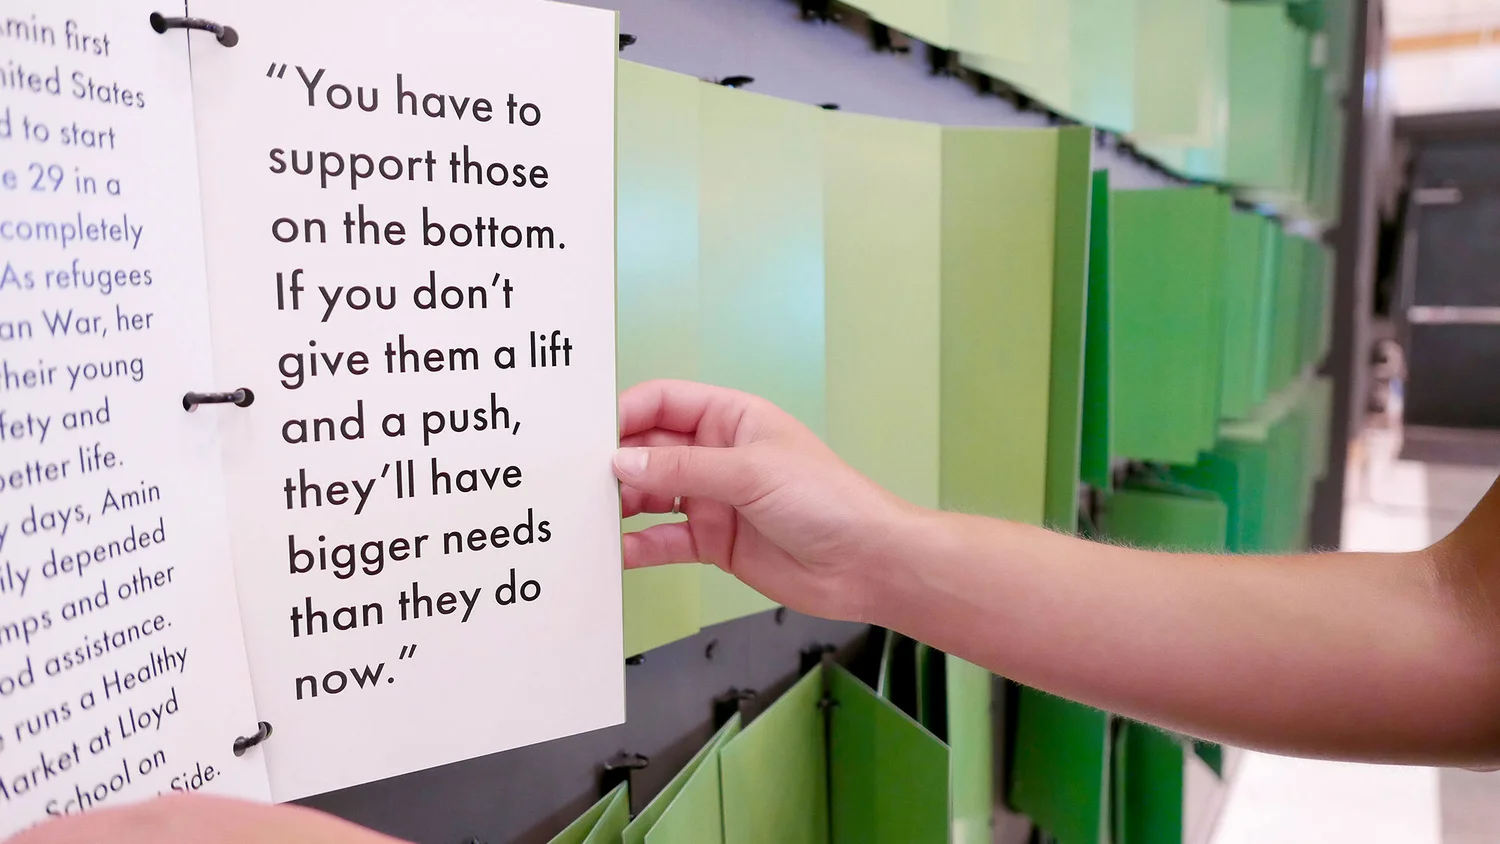 min first
nited States
d to start
e 29 in a
completely
As refugees
an War, her
their young
fety and
better life.
y days, Amin
ily depended
mps and other
od assistance.
runs a Healthy
Market at Lloyd
School on
Side.
“You have to
support those
on the bottom.
If you don’t
give them a lift
and a push,
they’ll have
bigger needs
than they do
now.”